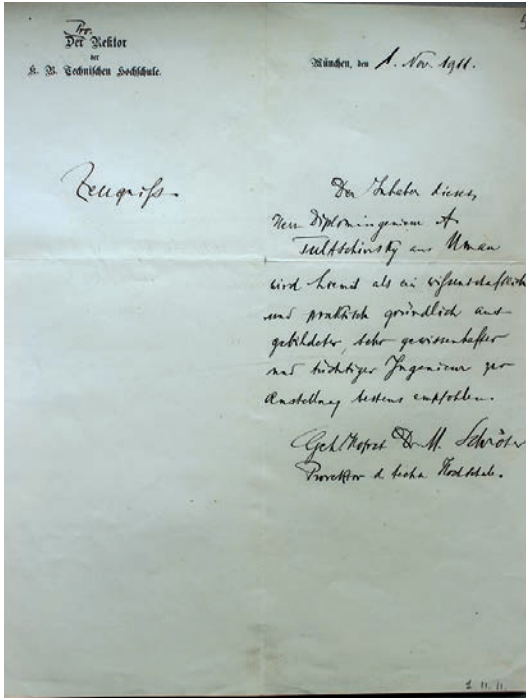 Pro.
Der Rektor
der
K. B. Technischen Hochschule.
München, den 1. Nov. 1911.
Zeugniß.
Der Inhaber dieses,
Herr Diplomingenieur A.
Tultschinsky aus Uman
wird hiemit als ein wißenschaftlich
und praktisch gründlich aus-
gebildeter, sehr gewissenhafter
und tüchtiger Ingenieur zur
Anstellung bestens empfohlen.
Geh. Hofrat Dr. M. Schröter
Prorektor d. techn. Hochschule.
1. 11. 11.